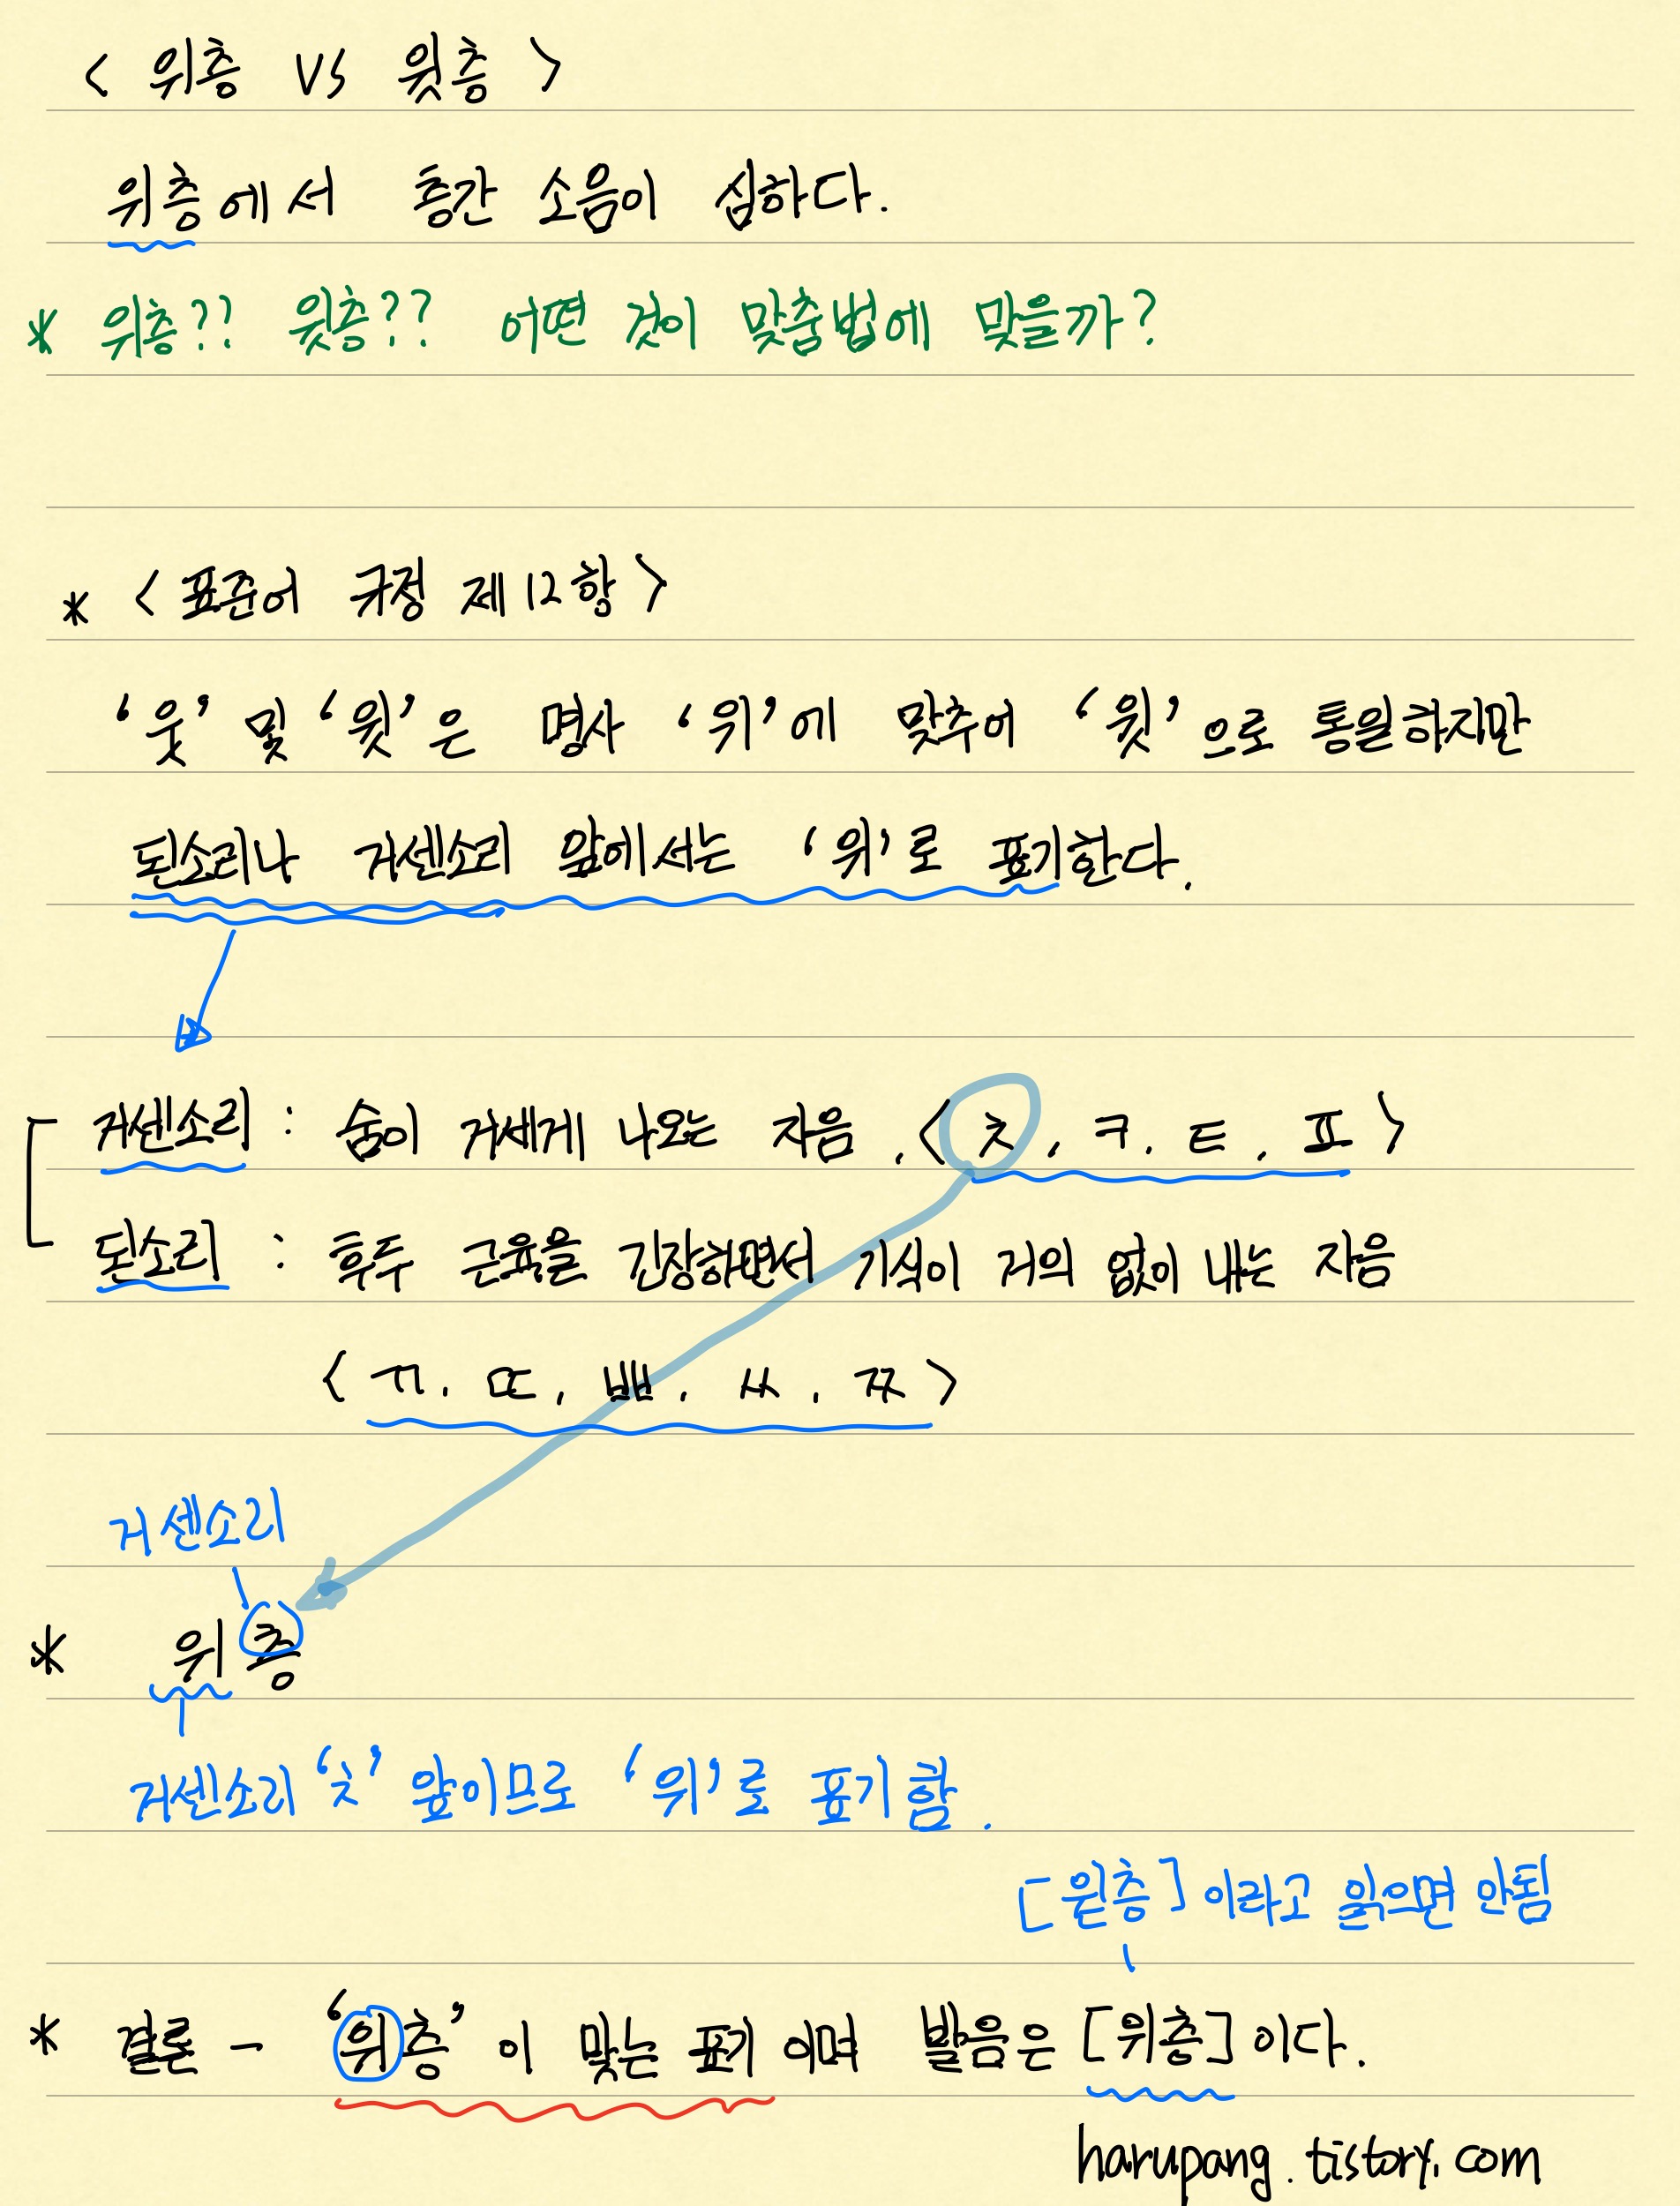 < 위층 VS 윗층 >
위층에서 층간 소음이 심하다.
* 위층?? 윗층?? 어떤 것이 맞춤법에 맞을까?
* < 표준어 규정 제12항 >
‘웃’ 및 ‘윗’은 명사 ‘위’에 맞추어 ‘윗’으로 통일하지만
된소리나 거센소리 앞에서는 ‘위’로 표기한다.
거센소리 : 숨이 거세게 나오는 자음. < ㅊ, ㅋ, ㅌ, ㅍ >
된소리 : 후두 근육을 긴장하면서 기식이 거의 없이 내는 자음
< ㄲ, ㄸ, ㅃ, ㅆ, ㅉ >
거센소리
* 위층
거센소리 ‘ㅊ’ 앞이므로 ‘위’로 표기함.
[윋층]이라고 읽으면 안됨
* 결론 - ‘위층’이 맞는 표기이며 발음은 [위층]이다.
harupang.tistory.com